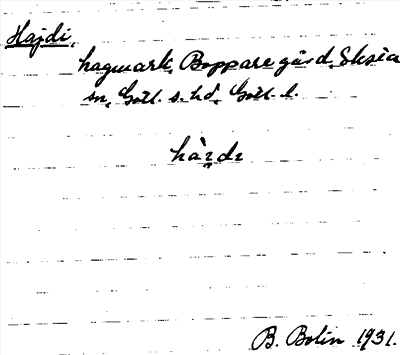 Hajdi,
hagmark, Boppare gård, Eksta
sn, Gotl. s. hd, Gotl. l.
B. Bolin 1931.